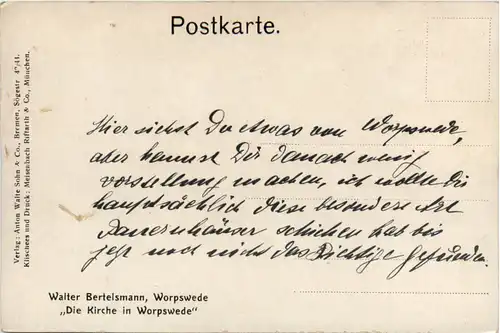 Postkarte.
Verlag: Anton Walte Sohn & Co., Bremen, Sögestr. 4⁰/41.
Klischees und Druck: Meisenbach Riffarth & Co., München.
Hier siehst Du etwas von Worpswede,
aber kannst Dir danach wenig
vorstellung machen, ich wollte Dir
hauptsächlich diese besondere Art
Bauernhäuser schicken hab bis
jetzt noch nicht das Richtige gefunden.
Walter Bertelsmann, Worpswede
„Die Kirche in Worpswede"